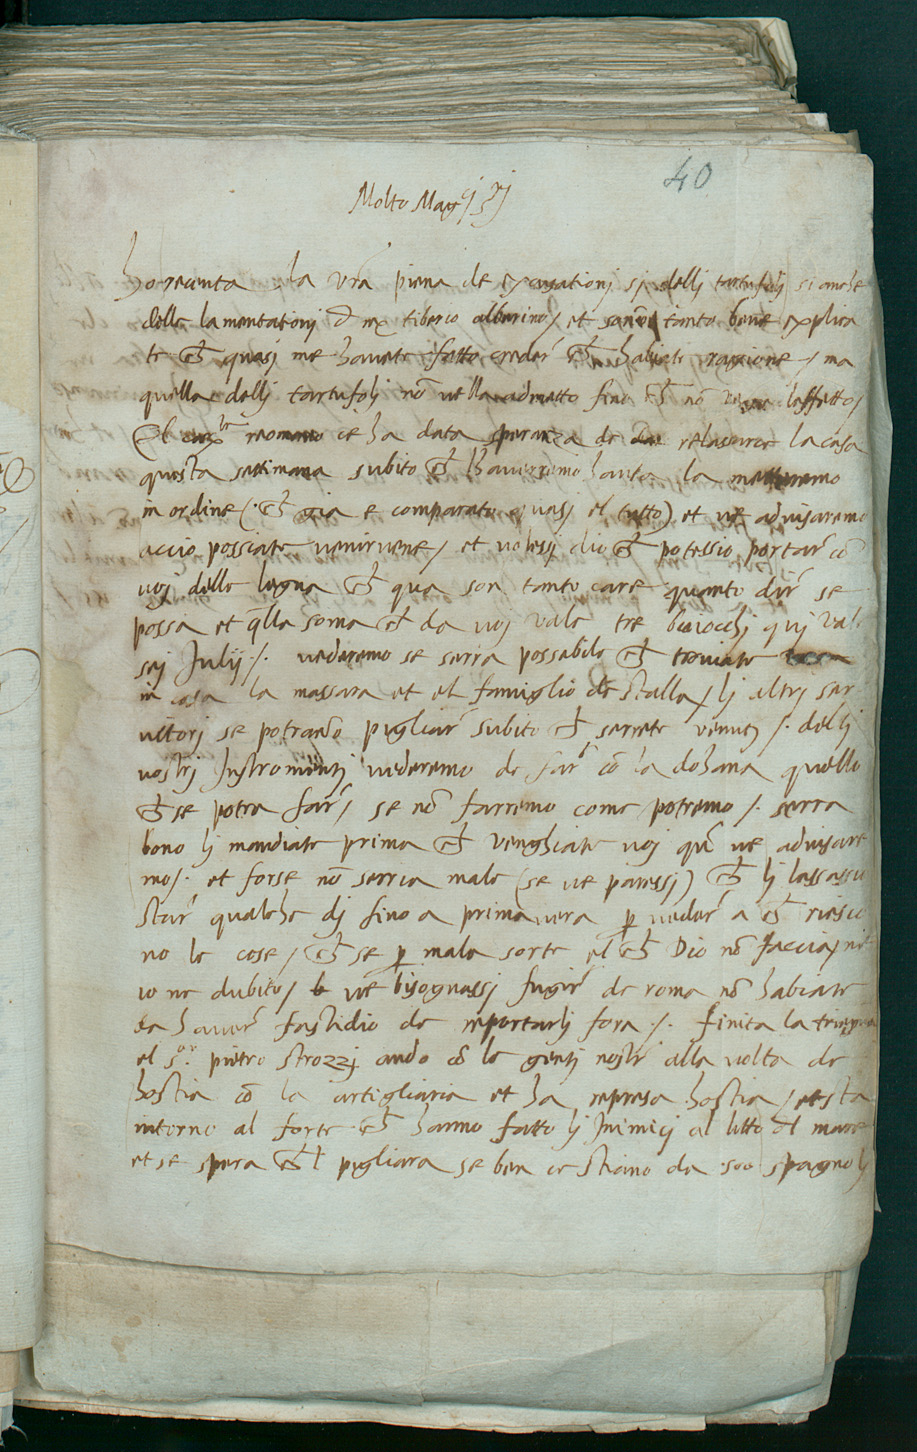 40
Molto Mag.ci s.ri
ho receuuta la vrã piena de excusationj sj dellj tartufolj si anche
delle lamentationj d mx tiberio alberino / et tanto bene explica
te ch quasj me havete fatto creder ch habiate raggione / ma
quella dellj tartufolj nõ ve lla admetto fino ch nõ l'effetto /
El romano ce ha data speranza de relassarce la casa
questa settimana subito ch l'haverremo hauta la metteremo
in ordine (ch gia e comparato quasj el tutto) et ve advisaremo
accio possiate venirvene / et volessj dio ch potessio portar cõ
voj delle legna ch qua son tanto care quanto dir se
possa et q̃lla soma ch da voj vale tre baiocchj quj vale
sej Julij /. vederemo se serra possebile ch troviate
in casa la massara et el famiglio de stalla / lj altrj ser
vitorj se potranõ pigliar subito ch serrete venutj /. dellj
vostrj Instromentj vederemo de far cõ la dohana quello
ch se potra far / se nõ farremo come potremo /. serra
bono lj mandiate prima ch venghiate voj q̃n ve advisare
mo /. et forse nõ serria male (se ve paressj) ch lj lassassiu
star qualche dj fino a primavera p veder a ch riescie
no le cose / ch se p mala sorte el ch Dio nõ faccia / nè
io ne dubito / ve bisognassj fugir de roma nõ habiate
da haver fastidio de reportarlj fora /. finita la triegua
el s.or pietro strozzj ando cõ le gentj nostre alla volta de
hostia cõ la artigliaria et ha represa hostia / et sta
intorno al forte ch hanno fatto lj Inimicj al litto del mare
et se spera ch 'l pigliara se ben ce stiano da 500 spagnolj